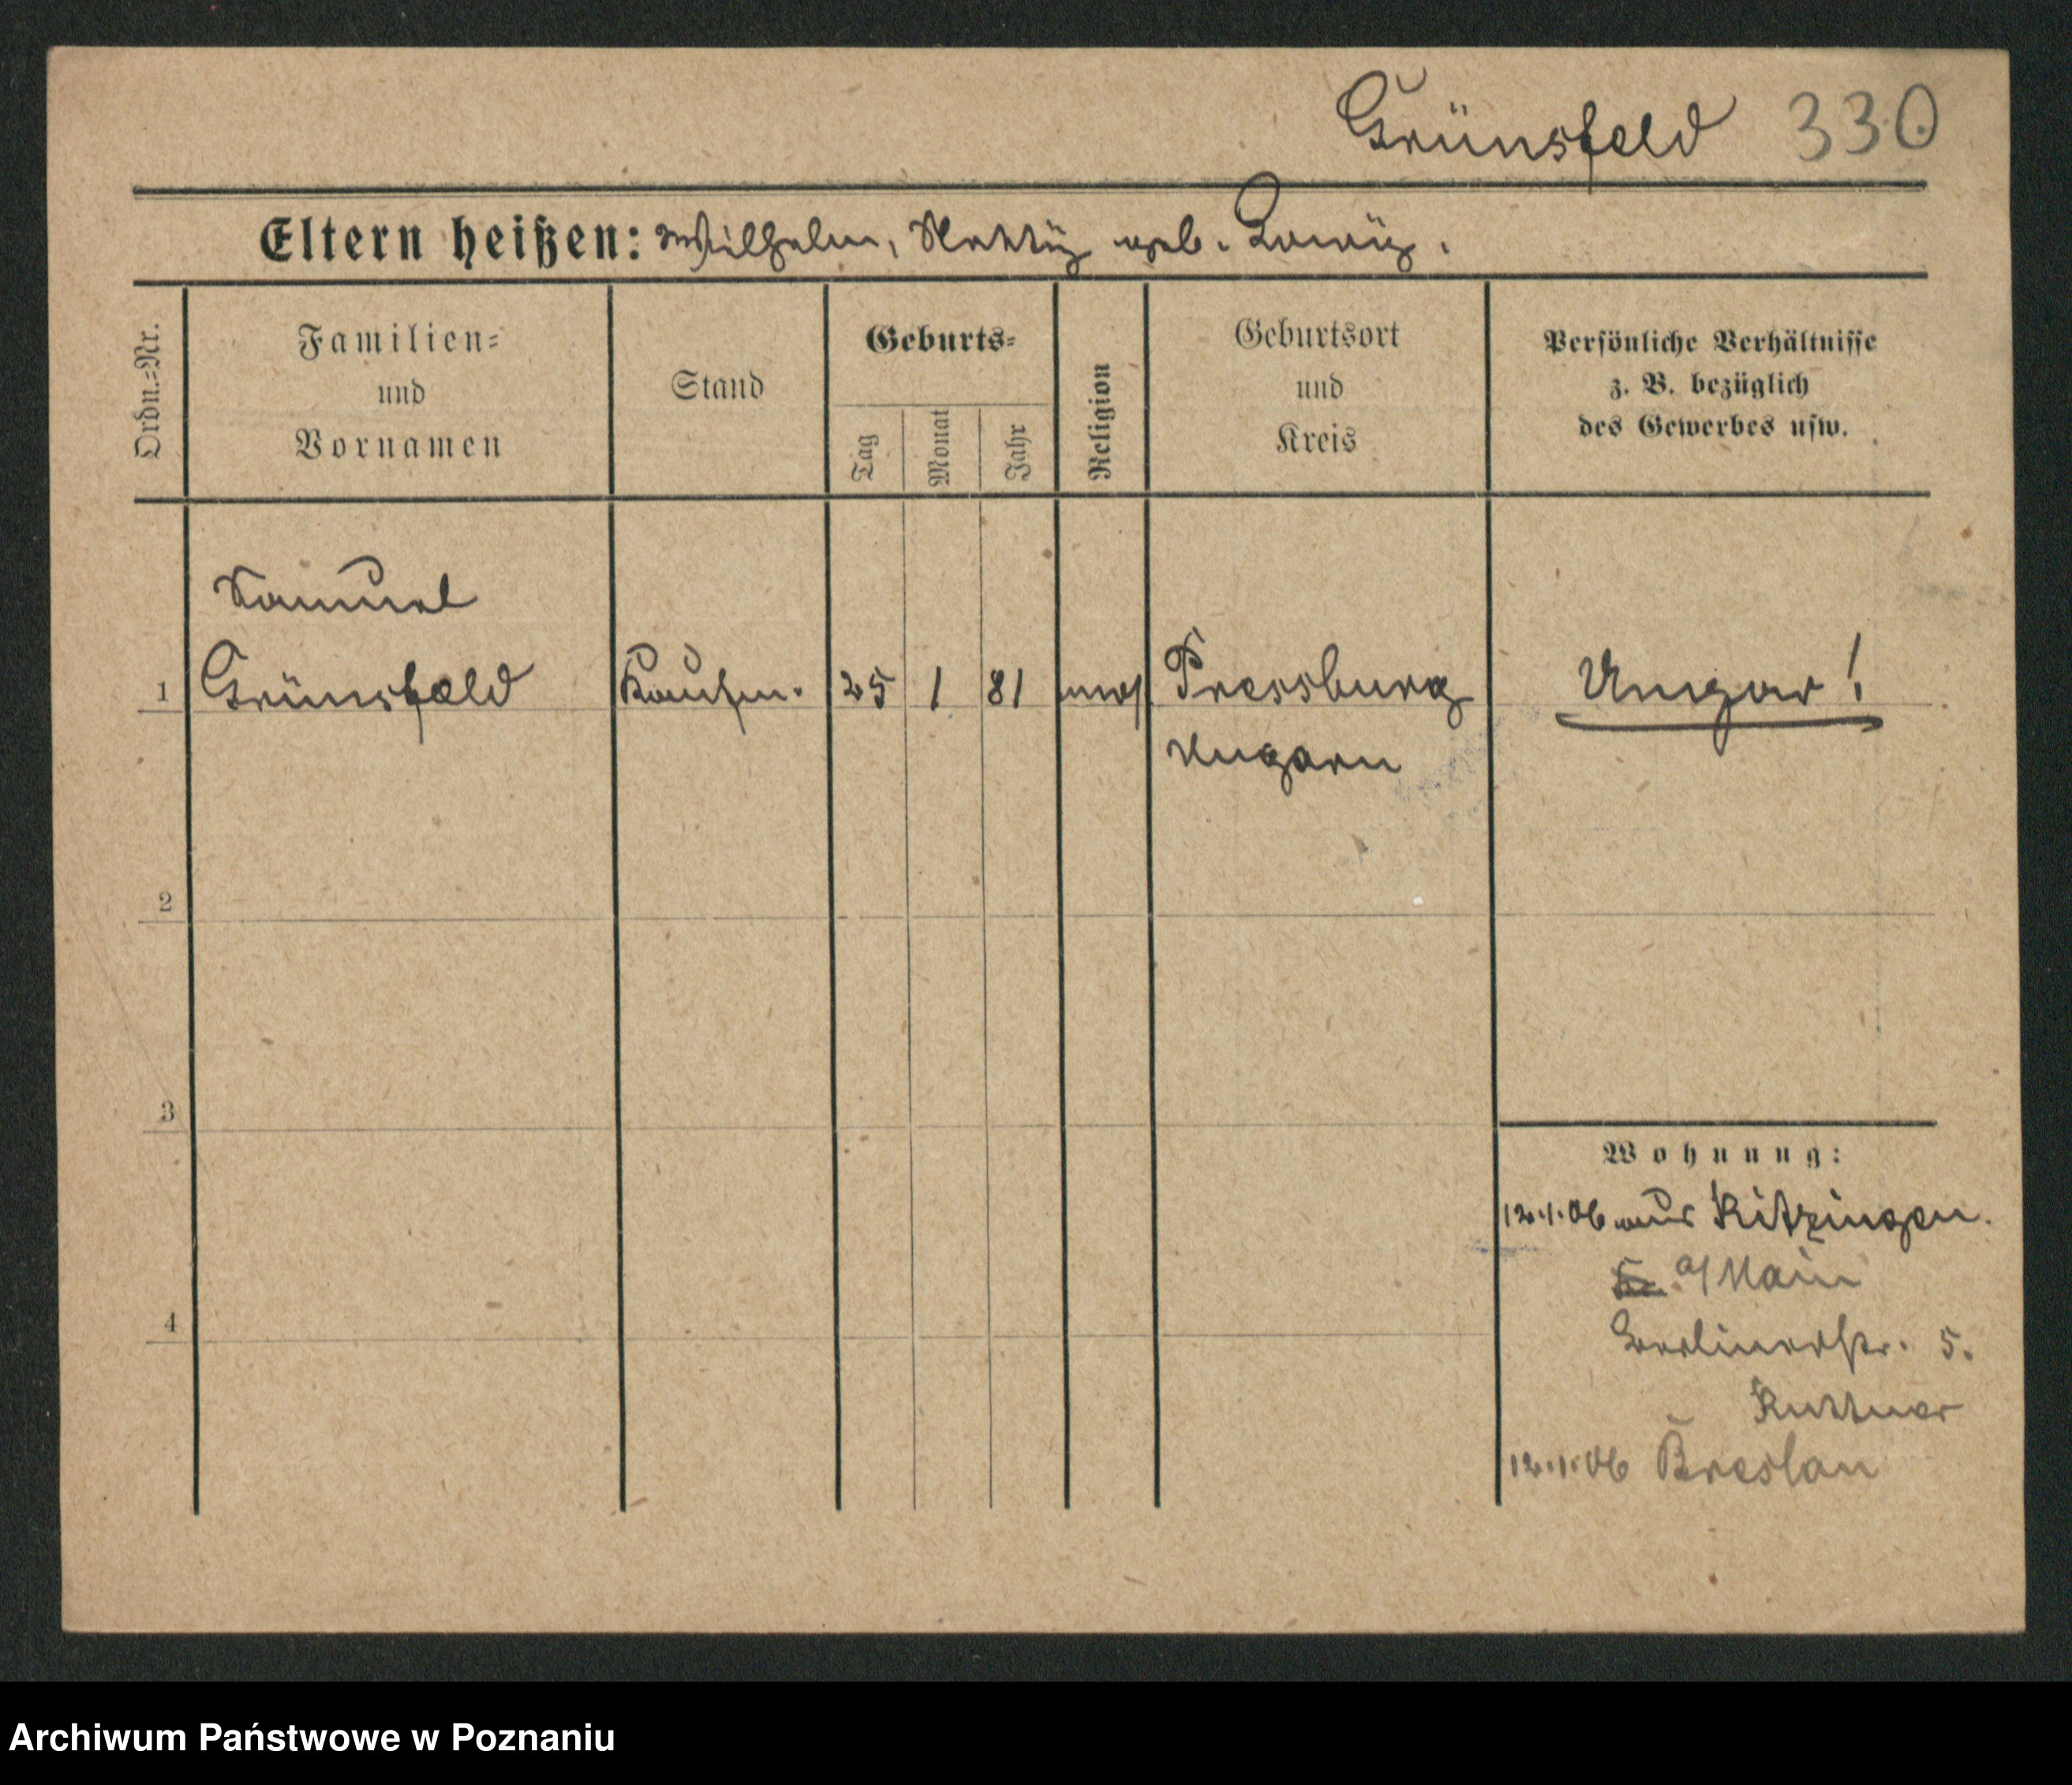 Grünsfeld 330
Eltern heißen: Wilhelm, geb.
Ordn.-Nr.
Familien-
und
Vornamen
Stand
Geburts-
Tag
Monat
Jahr
Religion
Geburtsort
und
Kreis
Persönliche Verhältnisse
z. B. bezüglich
des Gewerbes usw.
Samuel
1 Grünsfeld Kaufm. 25 1 81 mos. Pressburg Ungar!
Ungarn
2
3
Wohnung:
12.1.06 aus Kitzingen.
a/Main
4
Berlinerstr. 5.
Kuttner
12.1.06 Breslau
Archiwum Państwowe w Poznaniu